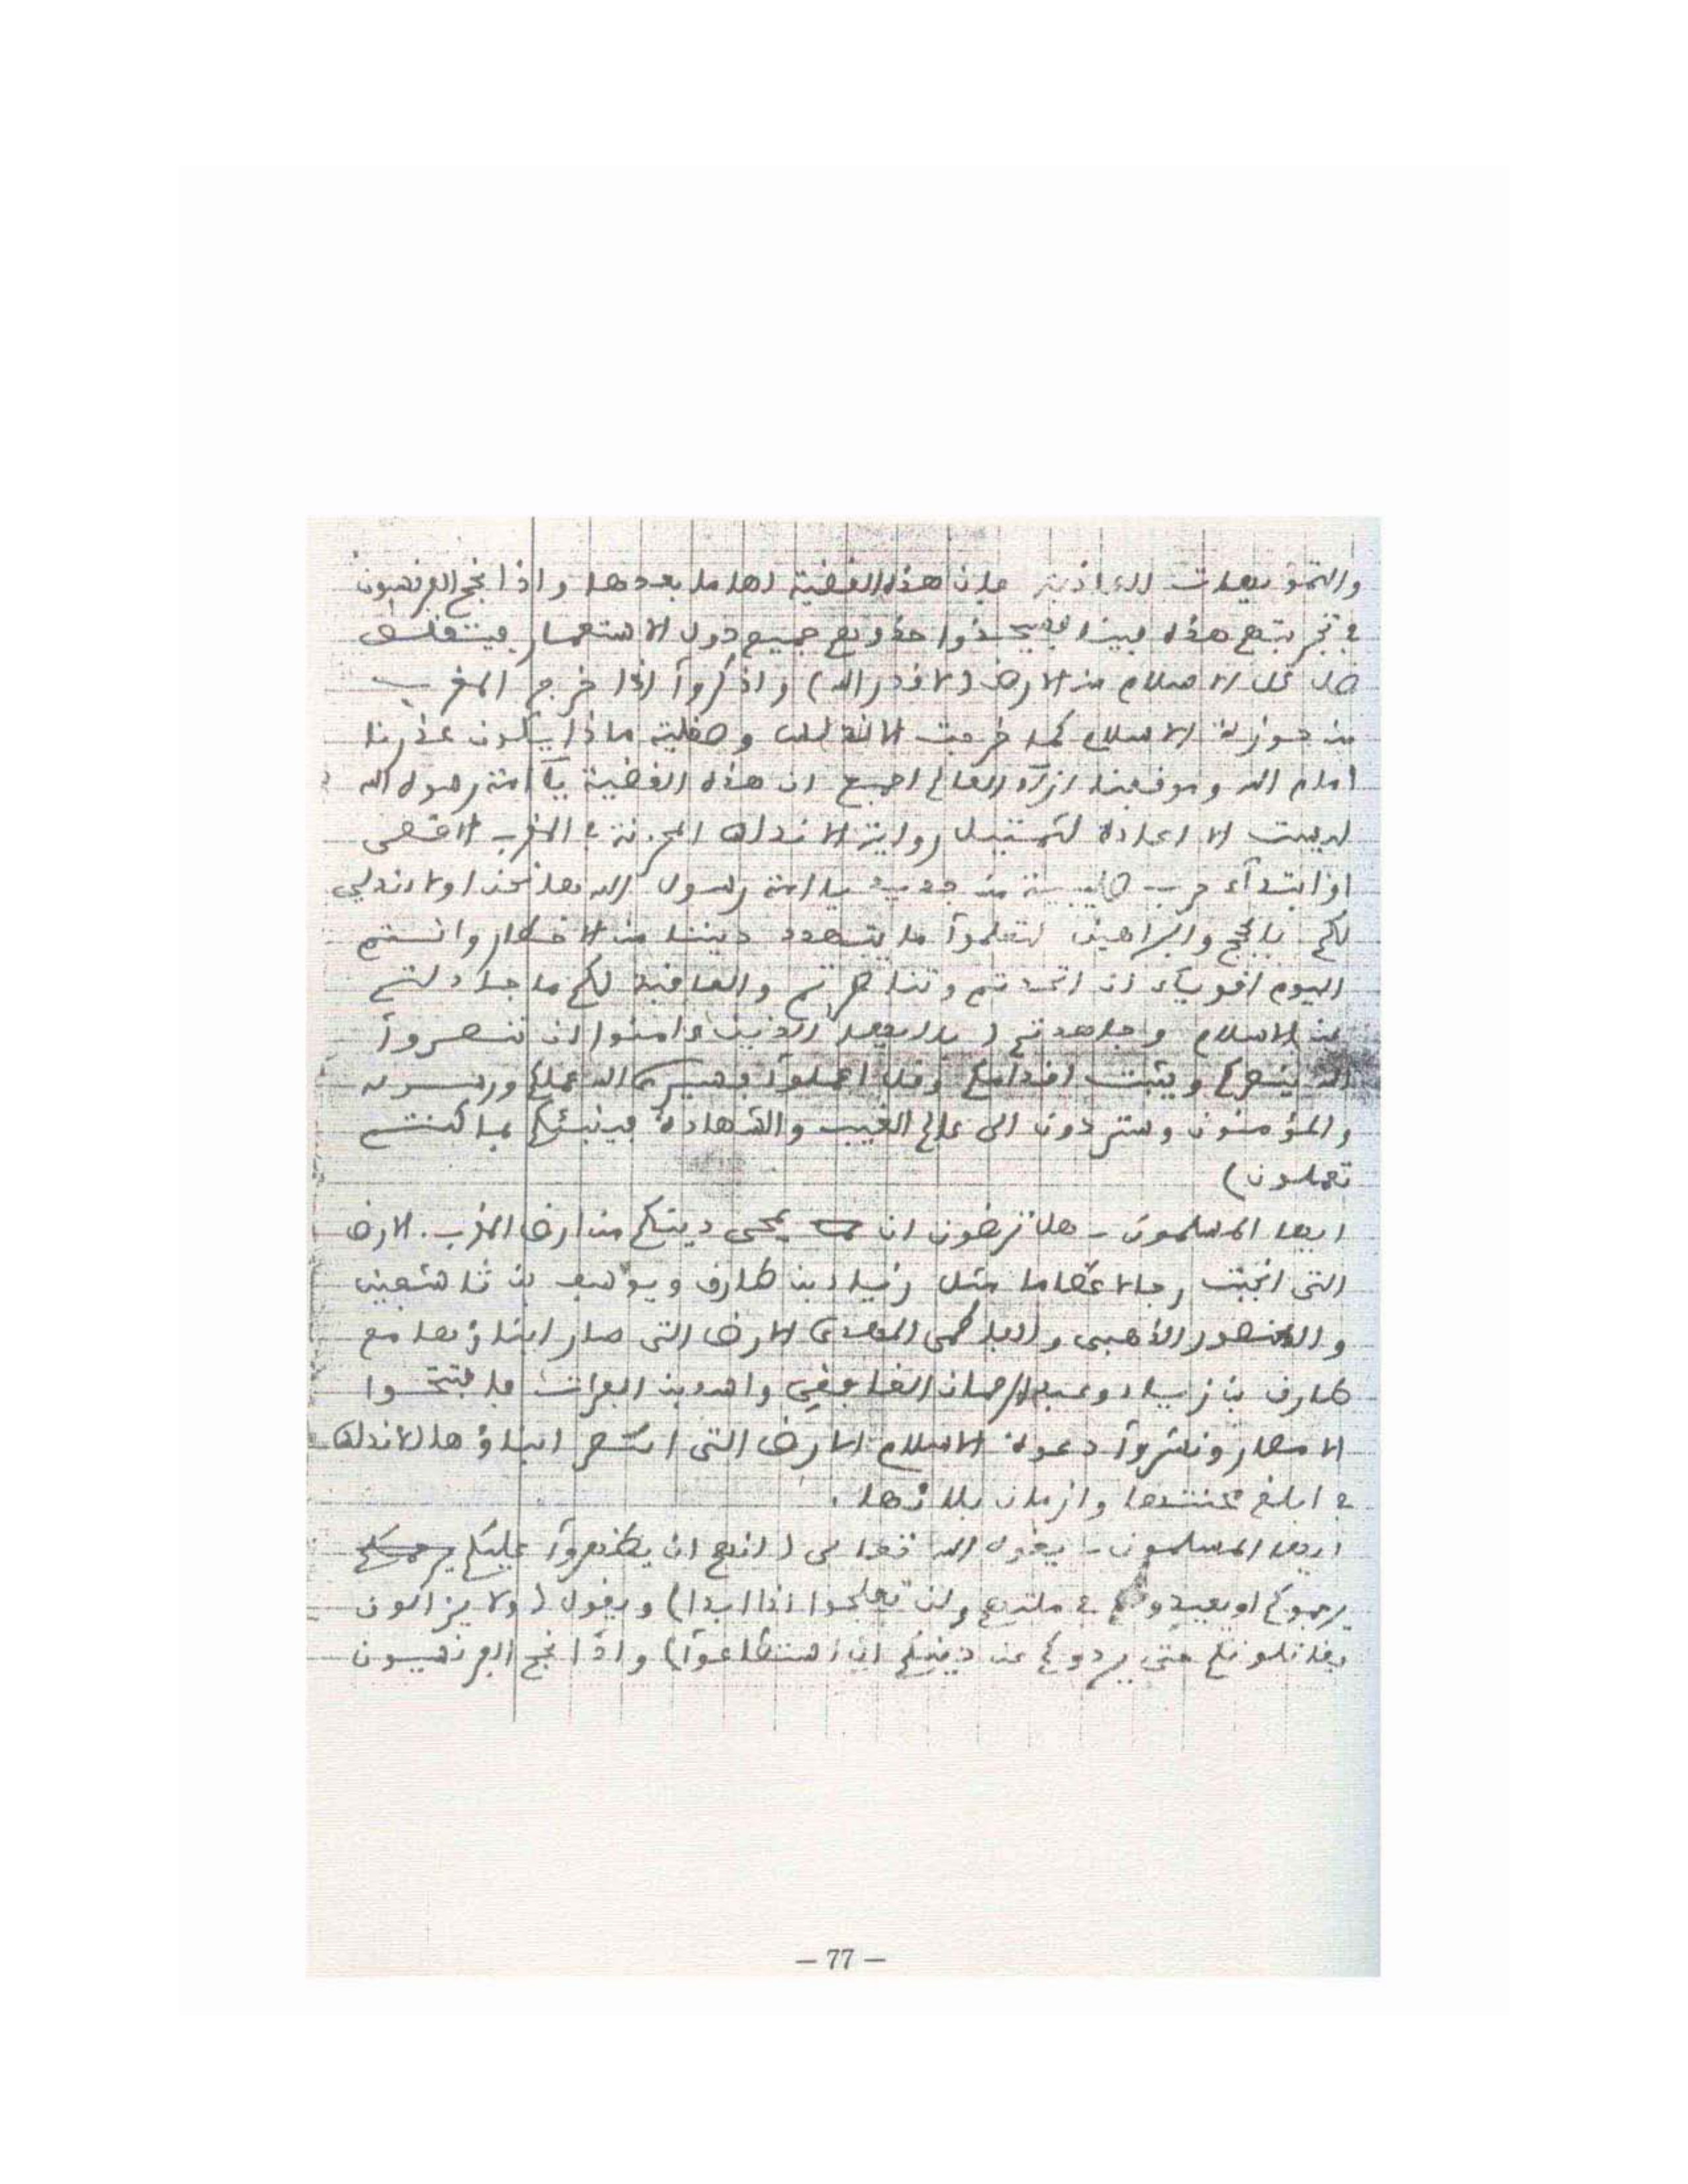 والتمويهات الكاذبة فان هذه القضية لها ما بعدها واذا نجح الفرنسيون
في تجربتهم هذه فينا فسيحذوا حذوهم جميع دول الاستعمار فيتقلص
ظل الاسلام من الارض (لا قدر الله) واذكروآ اذا خرج المغرب
من حوزة الاسلام كما خرجت الاندلس وصقلية ماذا يكون عذرنا
امام الله وموقفنا ازآء العالم اجمع ان هذه القضية يآ امة رسول الله
ليست الا اعادة لتمثيل رواية الاندلس المحزنة في المغرب الاقصى
او ابتدآء حرب صليبية من جديد يا امة رسول الله ها نحن اولا ندلي
لكم بالحجج والبراهين لتعلموآ ما يتهدد ديننا من الاخطار وانتم
اليوم اقوياء ان اتحدتم وتناصرتم والعاقبة لكم ما جادلتم
عن الاسلام وجاهدتم (يا ايها الذين ءامنوا ان تنصروآ
الله ينصركم ويثبت اقدامكم وقل اعملوآ فسيرى الله عملكم ورسوله
والمؤمنون وستردون الى عالم الغيب والشهادة فينبئكم بما كنتم
تعملون)
ايها المسلمون - هل ترضون ان يمحى دينكم من ارض المغرب. الارض
التي انجبت رجالا عظاما مثل زياد بن طارق ويوسف بن تاشفين
والمنصور الذهبي والفاطمي المهدي الارض التي صار ابناؤها مع
طارق بن زياد وعبد الرحمان الغافقي واسد بن الفرات فافتتحوا
الامصار ونشروآ دعوة الاسلام الارض التي ابناؤها الاندلس
في ابلغ محنتها وازمان بلائها.
ايها المسلمون - يقول الله تعالى (انهم ان يظهروآ عليكم
يرجموكم او يعيدوكم في ملتهم ولن تفلحوا اذا ابدا) ويقول (ولا يزالون
يقاتلونكم حتى يردوكم عن دينكم ان استطاعوآ) واذا نجح الفرنسيون
— 77 —